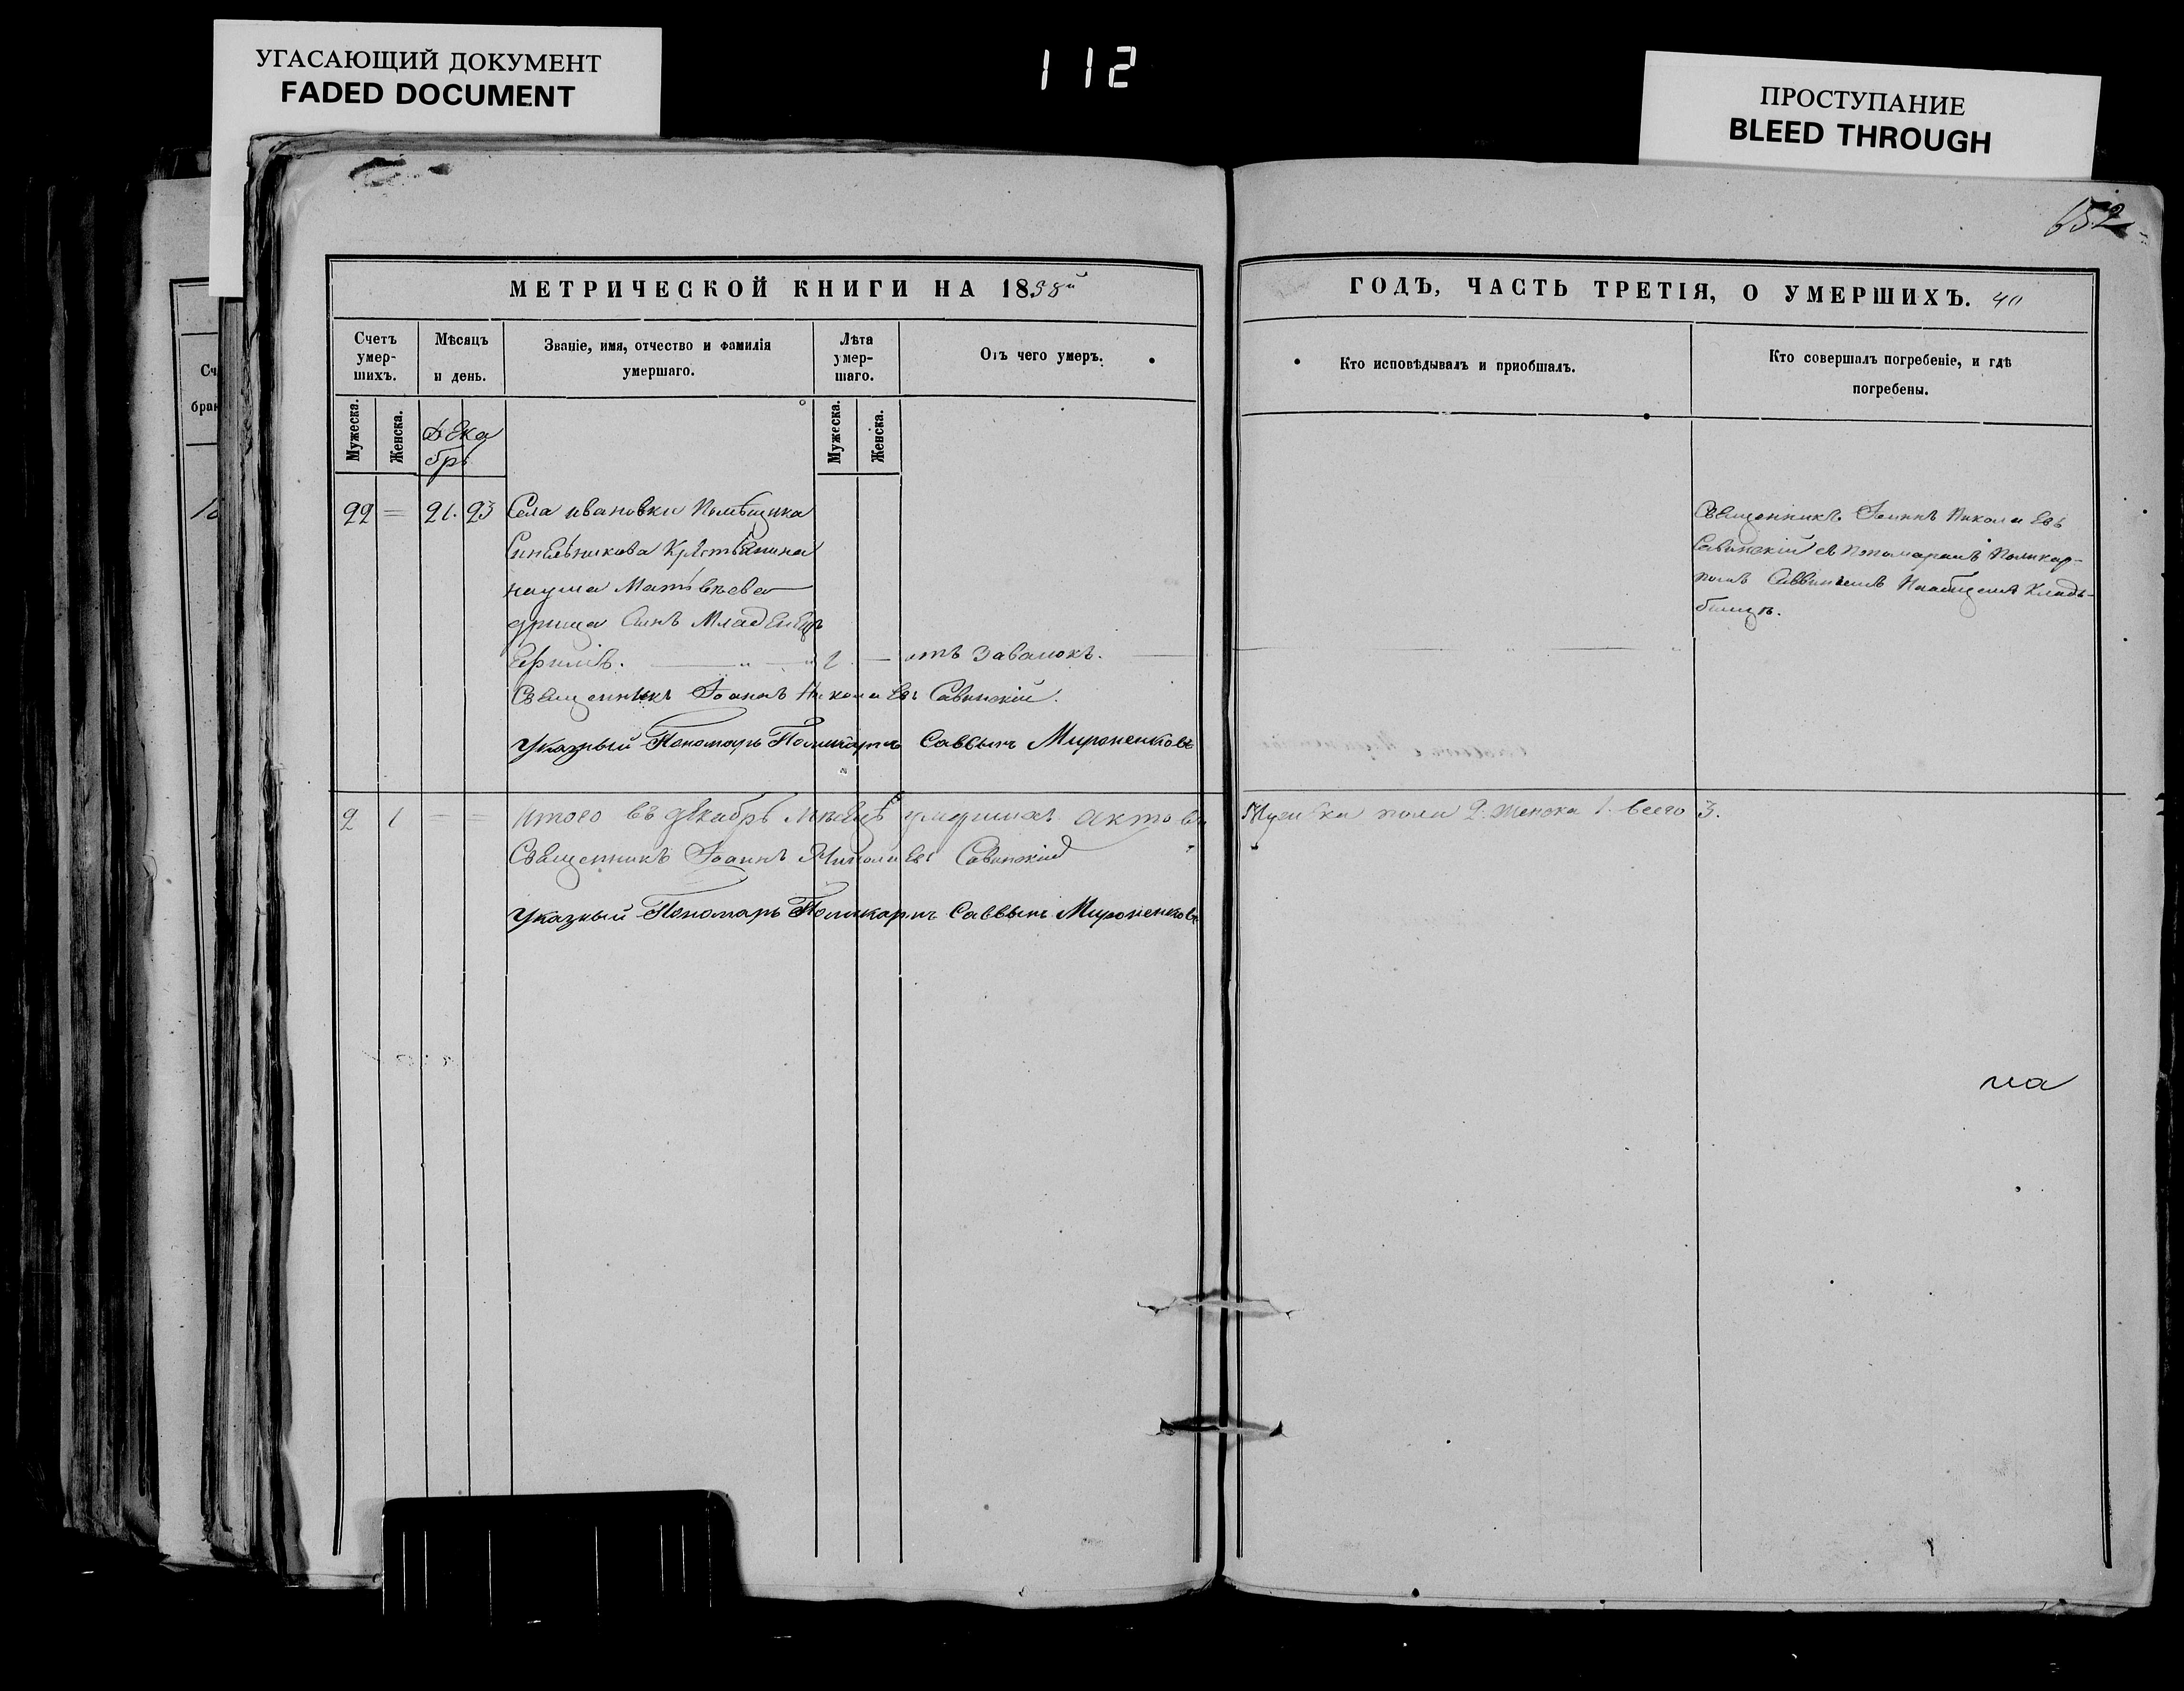 УГАСАЮЩИЙ ДОКУМЕНТ
FADED DOCUMENT
112
ПРОСТУПАНИЕ
BLEED THROUGH
652
МЕТРИЧЕСКОЙ КНИГИ НА 1858й
Счетъ умер-шихъ.
Мѣсяцъ и день.
Званіе, имя, отчество и фамилія умершаго.
Лѣта умер-шаго.
Отъ чего умеръ.
Мужеска.
Женска.
Дека
брь
Мужеска.
Женска.
22 = 21. 23 Села ивановки Помѣщика
Синельникова Крестьянина
наума Матвѣева
сынъ Младенецъ
Ефимъ. 1 отъ Завалокъ.
Священникъ Іоаннъ Николаевъ Савинскій.
Указный Пономарь Поликарпъ Саввинъ Мироненковъ
2 1 = = Итого въ декабрѣ Мѣсяцѣ умершихъ актовъ
Священникъ Іоаннъ Николаевъ Савинскій
Указный Пономарь Поликарпъ Саввинъ Мироненковъ
ГОДЪ, ЧАСТЬ ТРЕТІЯ, О УМЕРШИХЪ. 40
Кто исповѣдывалъ и пріобщалъ.
Кто совершалъ погребеніе, и гдѣ
погребены.
Священникъ Іоаннъ Николаевъ
Савинскій съ пономаремъ Поликар-
помъ Саввинымъ Наобщемъ Клад-
бищѣ.
Мужеска пола 2. женска 1. всего 3.
на
Сч
брак